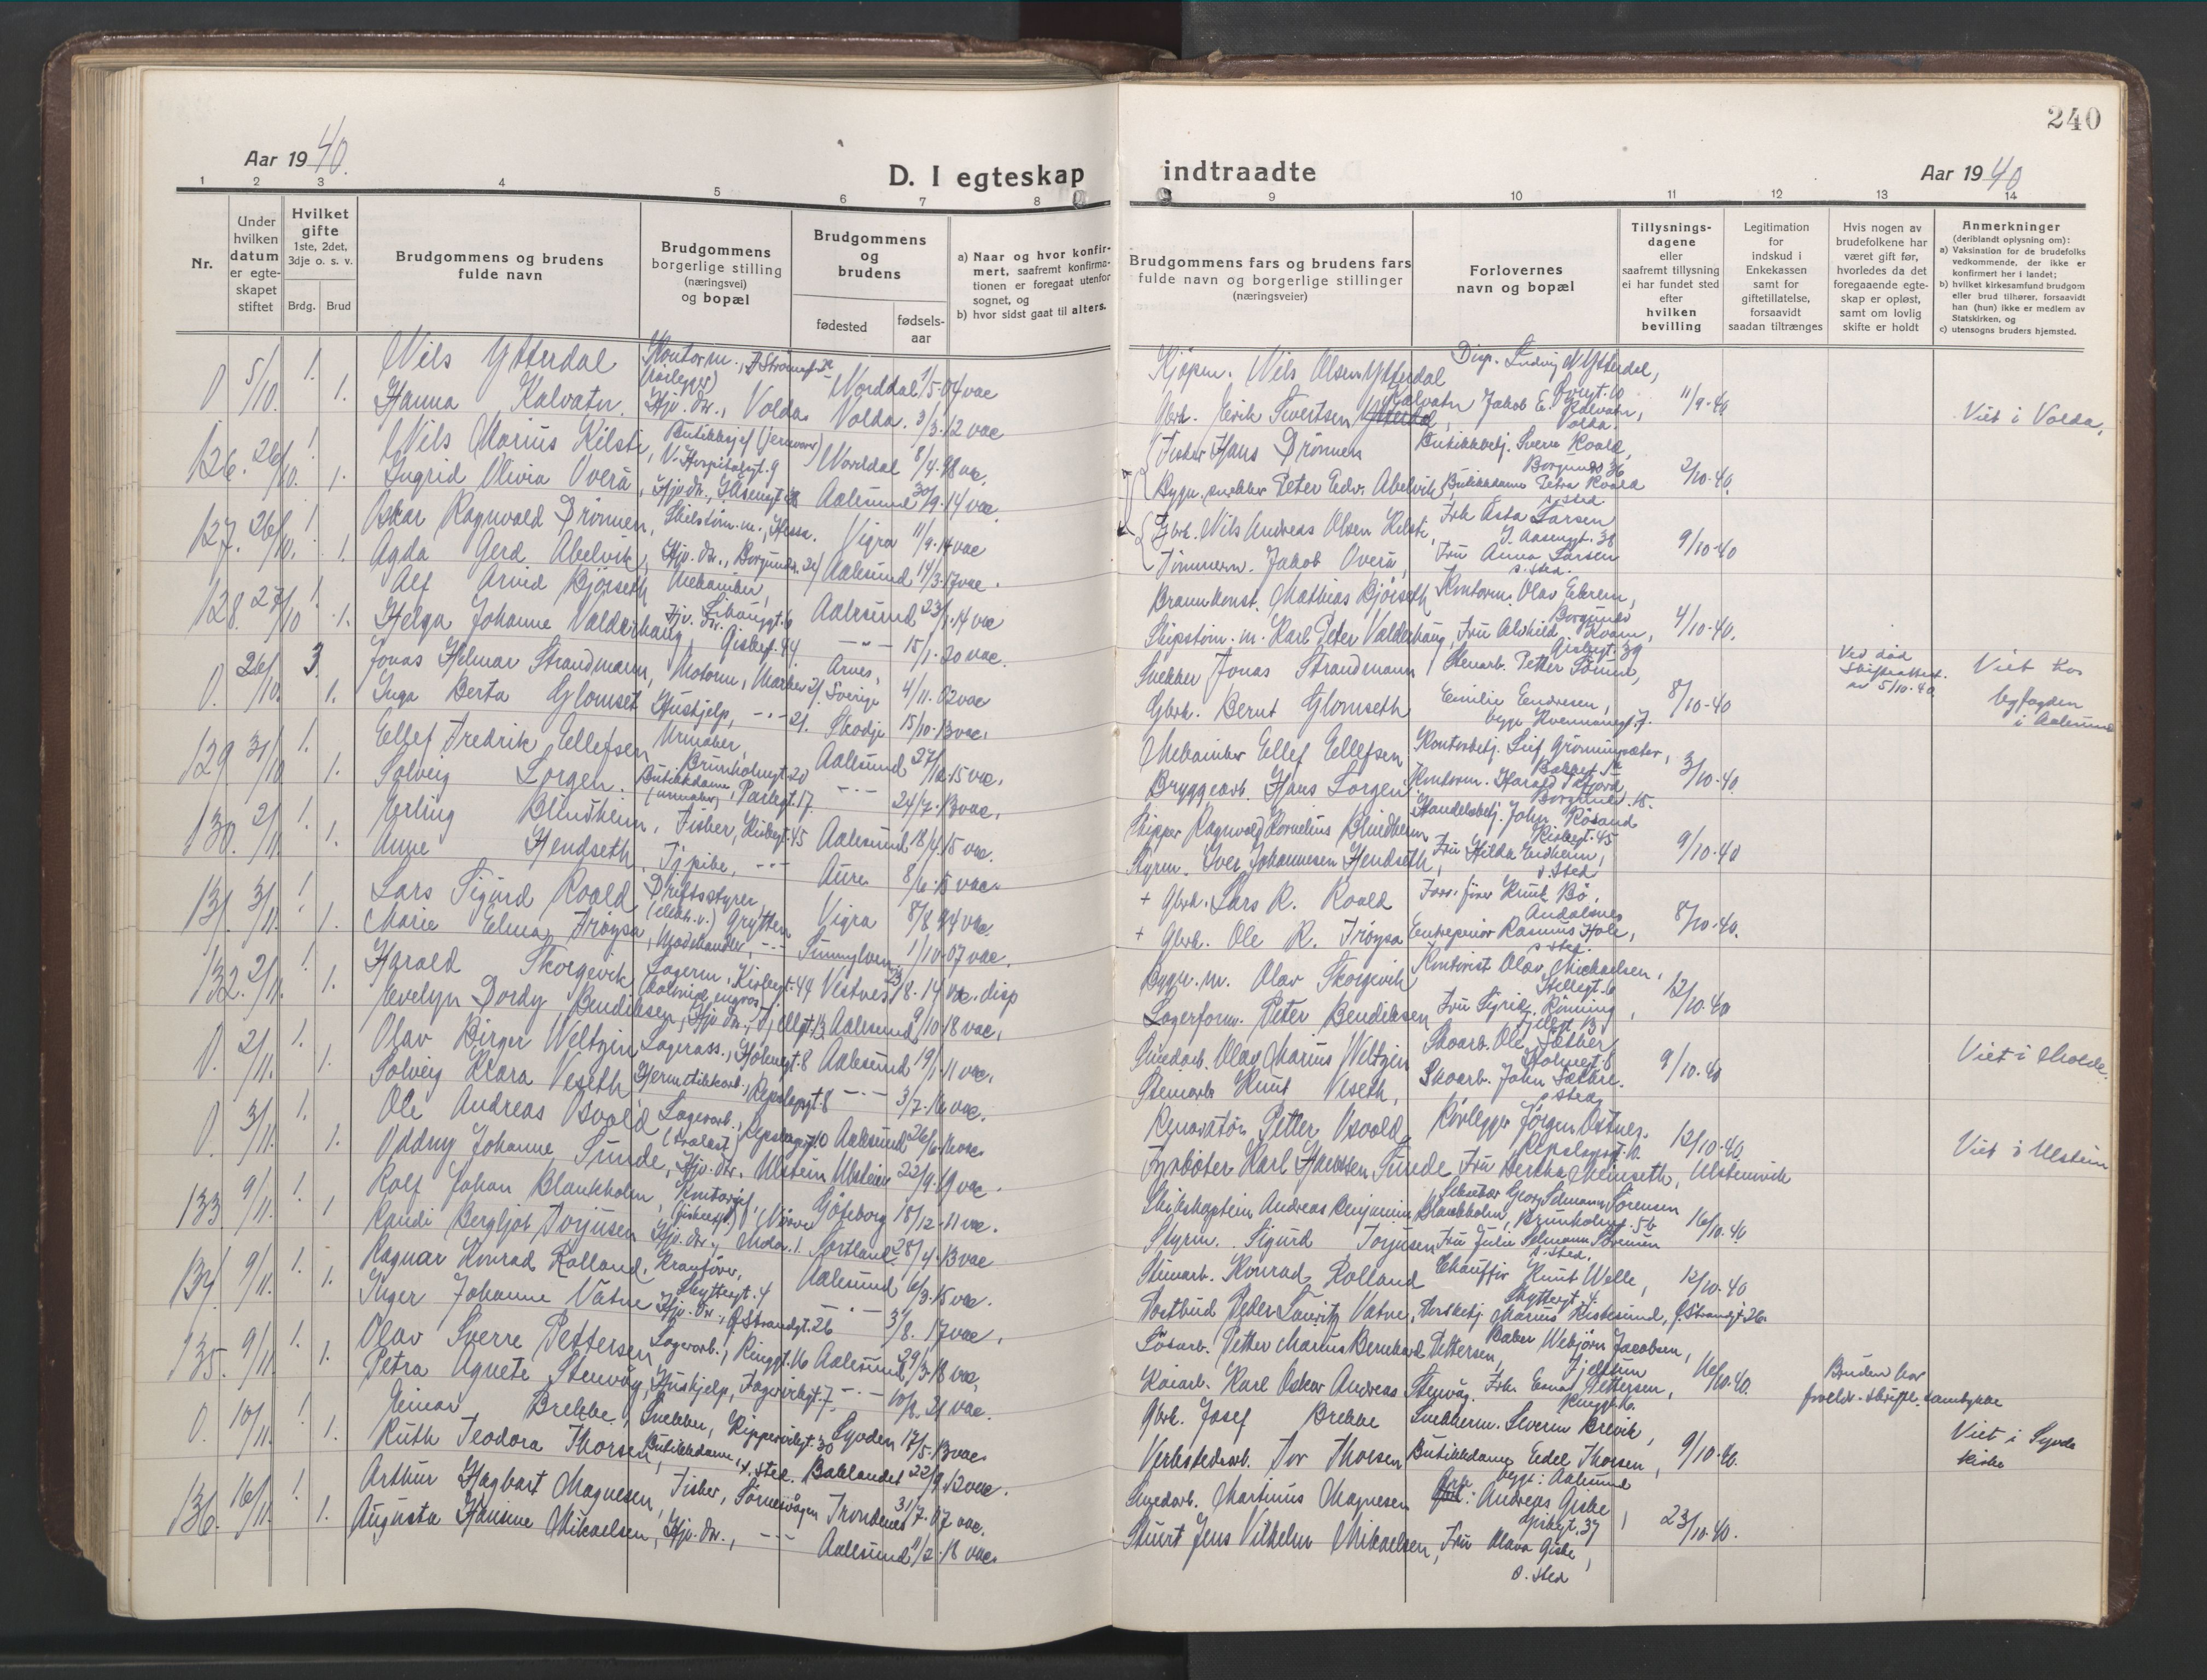 240
Aar 1940.
D. I egteskap
indtraadte
Aar 1940
1 2 3 4 5 6 7 8
9 10 11 12 13 14
Nr.
Under hvilken datum er egte-skapet stiftet
Hvilket gifte
1ste, 2det, 3dje o. s. v.
Brdg. Brud
Brudgommens og brudens fulde navn
Brudgommens borgerlige stilling (næringsvei) og bopæl
Brudgommens og brudens
fødested
fødsels-aar
a) Naar og hvor konfir-mert, saafremt konfirma-tionen er foregaat utenfor sognet, og
b) hvor sidst gaat til alters.
Brudgommens fars og brudens fars fulde navn og borgerlige stillinger (næringsveier)
Forlovernes navn og bopæl
Tillysnings-dagene eller saafremt tillysning ei har fundet sted efter hvilken bevilling
Legitimation for indskud i Enkekassen samt for giftetillatelse, forsaavidt saadan tiltrænges
Hvis nogen av brudefolkene har været gift før, hvorledes da det foregaaende egte-skap er opløst, samt om lovlig skifte er holdt
Anmerkninger
(deriblandt oplysning om):
a) Vaksination for de brudefolks vedkommende, der ikke er konfirmert her i landet;
b) hvilket kirkesamfund brudgom eller brud tilhører, forsaavidt han (hun) ikke er medlem av Statskirken, og
c) utensogns bruders hjemsted.
0 5/10. 1. Nils Ytterdal Kontorm., Norddal 1/5-04 vac
1. Hanna Kalvatn. Hjv. dr., Volda. Volda. 3/3.12 vac
Kjøpm. Nils Olsen Ytterdal Disp. Ludvig N Ytterdal,
Gbrk. Eirik Sivertsen Kalvatn, Jakob E. Kalvatn, Volda. 11/9-40 Viet i Volda.
126. 26/10. 1. Nils Marius Kilsti, Butikksjef (jernvare) N. Hospitalsgt. 9 Norddal 8/4.98 vac.
1. Ingrid Olivia Overå, Hjv. dr., Aalesund 30/9.14 vac.
Fisker Hans Drønnen Butikkbetj. Sverre Roald, Borgundv 36
Bygn. snekker Peter Edv. Abelvik, Butikkdame Petra Roald s. sted 2/10-40.
127. 26/10. 1. Oskar Ragnvald Drønnen, Hessa. Vigra 11/9.14 vac
1. Agda Gerd Abelvik, Hjv. dr., Borgundv. Aalesund 14/3.17 vac.
Gbrk. Nils Andreas Olsen Kilsti, Frk Asta Larsen J. Aasengt. 38
Tømmerm. Jakob Overå, Fru Anna Larsen s. sted. 9/10-40
128. 27/10 1. Alf Arvid Bjørseth Mekaniker, Aalesund
1. Helga Johanne Valderhaug, Hjv. dr. Giskegt. 44 - " - 15/1.20 vac.
Brannkonst. Mathias Bjørseth Kontorm. Olav Ekrem,
Skipstøm. m. Karl Peter Valderhaug, Fru Alvhild Kvam, Giskegt. 39 4/10-40.
0. 26/10. 3. Jonas Hilmar Strandmann, Motorm, Arnes, Sverige 4/11.02 vac
1. Inga Berta Glomset Hushjelp, - " - 21. Skodje 15/10.13 vac.
Snekker Jonas Strandmann Stenarb. Petter Sømme,
Gbrk. Bernt Glomseth Emilie Endresen, begge Kvennanegt. 7. 8/10-40 Ved død skifteattest. av 5/10-40 Viet hos byfogden i Aalesund
129. 31/10 1. Ellef Fredrik Ellefsen Urmaker, Brunholmgt. 20 Aalesund 27/12.15 vac.
1. Solveig Sorgen. Butikkdame (urmaker) Parkgt. 17. - " - 24/7.13 vac.
Mekaniker Ellef Ellefsen Kontorbetj. Leif Grønningsæter,
Bryggearb. Hans Sorgen Kontorm. Harald Tafjord, 3/10-40.
130. 2/11. 1. Erling Blindheim, Fisker, Kirkegt. 45 Aalesund 18/4.15 vac.
1. Anne Hendseth, Tjpike, - " - Aure 8/6.15 vac.
Skipper Ragnvald Kornelius Blindheim Handelsbetj. John Røsand Kirkegt. 45
Styrm. Iver Johannesen Hendseth, Fru Hilda Endheim, s. sted 9/10-40
131. 3/11. 1. Lars Sigurd Roald Driftsstyrer (elektr. v.) Grytten Vigra 8/8 94 vac
1. Marie Elma Frøysa, Modehandler, - " - Sunnylven 1/10.07 vac.
+ Gbrk. Lars R. Roald Forr. fører Knut Bø, Andalsnes
+ Gbrk. Ole R. Frøysa Entreprenør Rasmus Hole, s. sted. 8/10-40.
132. 2/11. 1. Harald Skorgevik Lagerm, Kirkegt. 44 Vestnes 8.14 vac. disp
1. Evelyn Dordy Bendiksen, Hjv. dr., Aalesund 9/10.18 vac.
Bygn. m. Olav Skorgevik Kontorist Olav Mickaelsen,
Lagerform. Peter Bendiksen Fru Sigrid Rønning, 12/10.40
0. 2/11. 1. Olav Birger Weltzin Lagerass., Holmegt. 8 Aalesund 19/1.11 vac.
1. Solveig Klara Veseth Hermetikkarb., Repslagergt. 8 - " - 3/7.16 vac.
Smedarb. Olav Marius Weltzin Skoarb. Ole Sæther, Holmegt. 8
Stenarb. Knut Veseth, Skoarb. John Sæthre. s. sted 9/10.40 Viet i Skodje.
0. 3/11. 1. Ole Andreas Osvold Lagerarb., Repslagergt. 10 Aalesund 26/6.16 vac
1. Oddny Johanne Sunde, Hjv. dr. Ulstein Ulstein 22/9.19 vac
Renovatør Petter Osvold Rørlegger Jørgen Ostnes, Repslagergt. 10.
Fyrbøter Karl Hanssen Sunde Fru Bertha Meinseth, Ulsteinvik 12/10-40. Viet i Ulstein
133 9/11. 1. Rolf Johan Blankholm, Kontorsjef, Göteborg 18/12.11 vac.
1 Randi Bergljot Torjusen Hjv. dr., Nortland 28/4.13 vac
Skibskaptein Andreas Benjamin Blankholm, Sekretær Georg Selmann Sørensen Brunholmgt. 5b
Styrm. Sigurd Torjusen Fru Julie Selmann Sørensen s. sted. 16/10.40
134. 9/11. 1. Ragnar Konrad Rolland, Kranfører, Skyttergt. 4 Aalesund 6/3.15 vac.
1. Inger Johanne Vatne Hjv. dr., Ø. Strandgt. 26 - " - 3/8. 17 vac.
Stenarb. Konrad Rolland Chauffør Knut Welle, Skyttergt. 4. 12/10-40
Postbud Peder Lauritz Vatne, Marius Kistesund, Ø. Strandgt 26.
135. 9/11. 1. Olav Sverre Pettersen Lagerarb., Ringgt. 16 Aalesund 29/3.18 vac.
1. Petra Agnete Stenvåg, Hushjelp, Fagervikgt. 7 - " - 10/8.21 vac.
Løsarb. Petter Marius Bernhard Pettersen, Baker Webjørn Jacobsen, Fjeldtun
Kaiarb. Karl Oskar Andreas Stenvåg. Frk. Esna Pettersen, Ringgt 16. 16/10.40. Bruden har foreldr. skriftl. samtykke
0. 10/11. 1. Einar Brekke, Snekker, Kippervikgt. 30 Syvden 17/5.13 vac
1. Ruth Teodora Thorsen, Butikkdame, s. sted. Baklandet 22/9.12 vac.
Gbrk. Josef Brekke Snekkerm. Severin Brevik,
Verkstedarb. Tor Thorsen Butikkdame Eidel Thorsen, begge: Aalesund 9/10-40. Viet i Syvde kirke
136. 16/11. 1. Arthur Hagbart Magnesen, Fisker, Sørnesvågen Trondenes 31/7.07 vac.
1. Augusta Hansine Mikaelsen, Hjv. dr., - " - Aalesund 11/2.18 vac
Smedarb. Martinus Magnesen Andreas Giske Giskegt. 37
Stuert Jens Vilhelm Mikaelsen, Fru Olava Giske, s. sted 23/10.40.